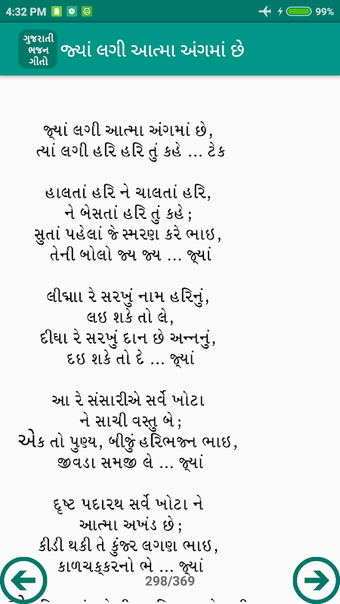 4:32 PM
99%
ગુજરાતી
ભજન
ગીતો
જ્યાં લગી આત્મા અંગમાં છે
જ્યાં લગી આત્મા અંગમાં છે,
ત્યાં લગી હરિ હરિ તું કહે ... ટેક
હાલતાં હરિ ને ચાલતાં હરિ,
ને બેસતાં હરિ તું કહે ;
સુતાં પહેલાં જે સ્મરણ કરે ભાઇ,
તેની બોલો જ્ય જ્ય ... જ્યાં
લીઘ્રાા રે સરખું નામ હરિનું,
લઇ શકે તો લે,
દીઘા રે સરખું દાન છે અન્નનું,
દઇ શકે તો દે ... જ્યાં
આ રે સંસારીએ સર્વે ખોટા
ને સાચી વસ્તુ બે ;
એક તો પુણ્ય, બીજું હરિભજ્ન ભાઇ,
જીવડા સમજી લે ... જ્યાં
દૃષ્ટ પદારથ સર્વે ખોટા ને
આત્મા અખંડ છે ;
કીડી થકી તે કુંજર લગણ ભાઇ,
કાળચક્કરનો ભે ... જ્યાં
298/369